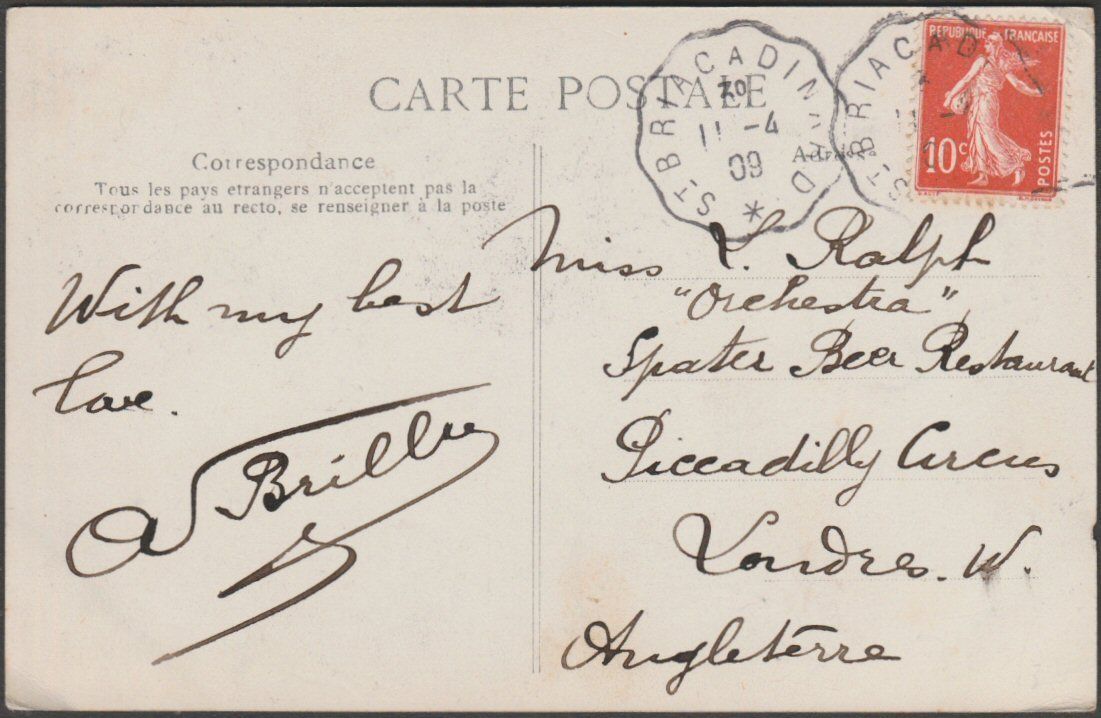 CARTE POSTALE
ST. BRIAC A DINARD
2º
11 -4
09
*
RÉPUBLIQUE FRANÇAISE
10c
POSTES
Correspondance
Tous les pays etrangers n'acceptent pas la
correspordance au recto, se renseigner à la poste
Adresse
With my best
love.
Miss L. Ralph
"Orchestra"
Spater Beer Restaurant
Piccadilly Circus
Londres. W.
Angleterre